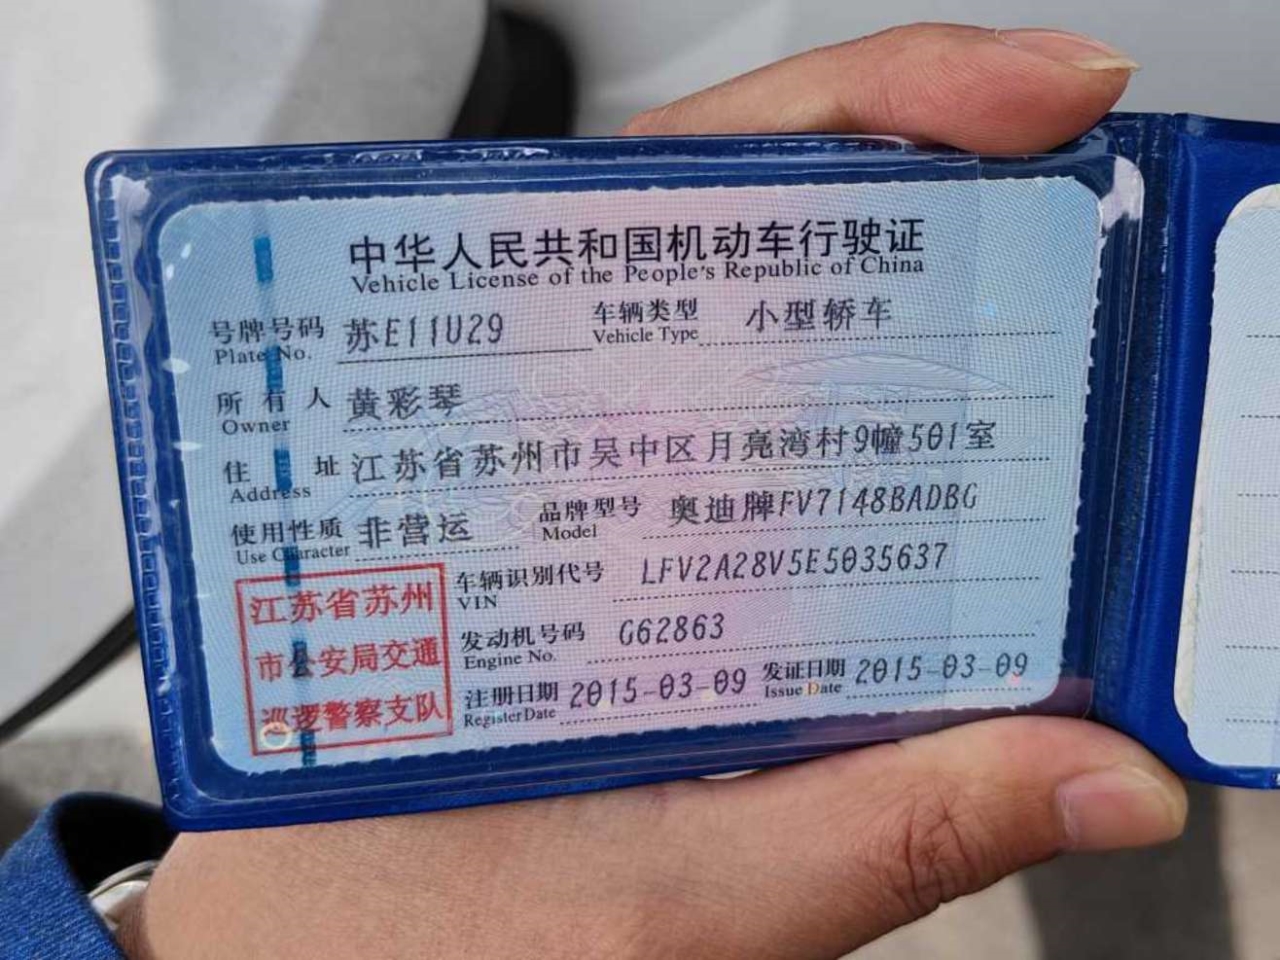 中华人民共和国机动车行驶证
Vehicle License of the People's Republic of China
号牌号码 苏E11U29 车辆类型 小型轿车
Plate No. Vehicle Type
所有人 黄彩琴
Owner
住址 江苏省苏州市吴中区月亮湾村9幢501室
Address
使用性质 非营运 品牌型号 奥迪牌FV7148BADBG
Use Character Model
车辆识别代号 LFV2A28V5E5035637
VIN
发动机号码 G62863
Engine No.
注册日期 2015-03-09 发证日期 2015-03-09
Register Date Issue Date
江苏省苏州
市公安局交通
巡逻警察支队